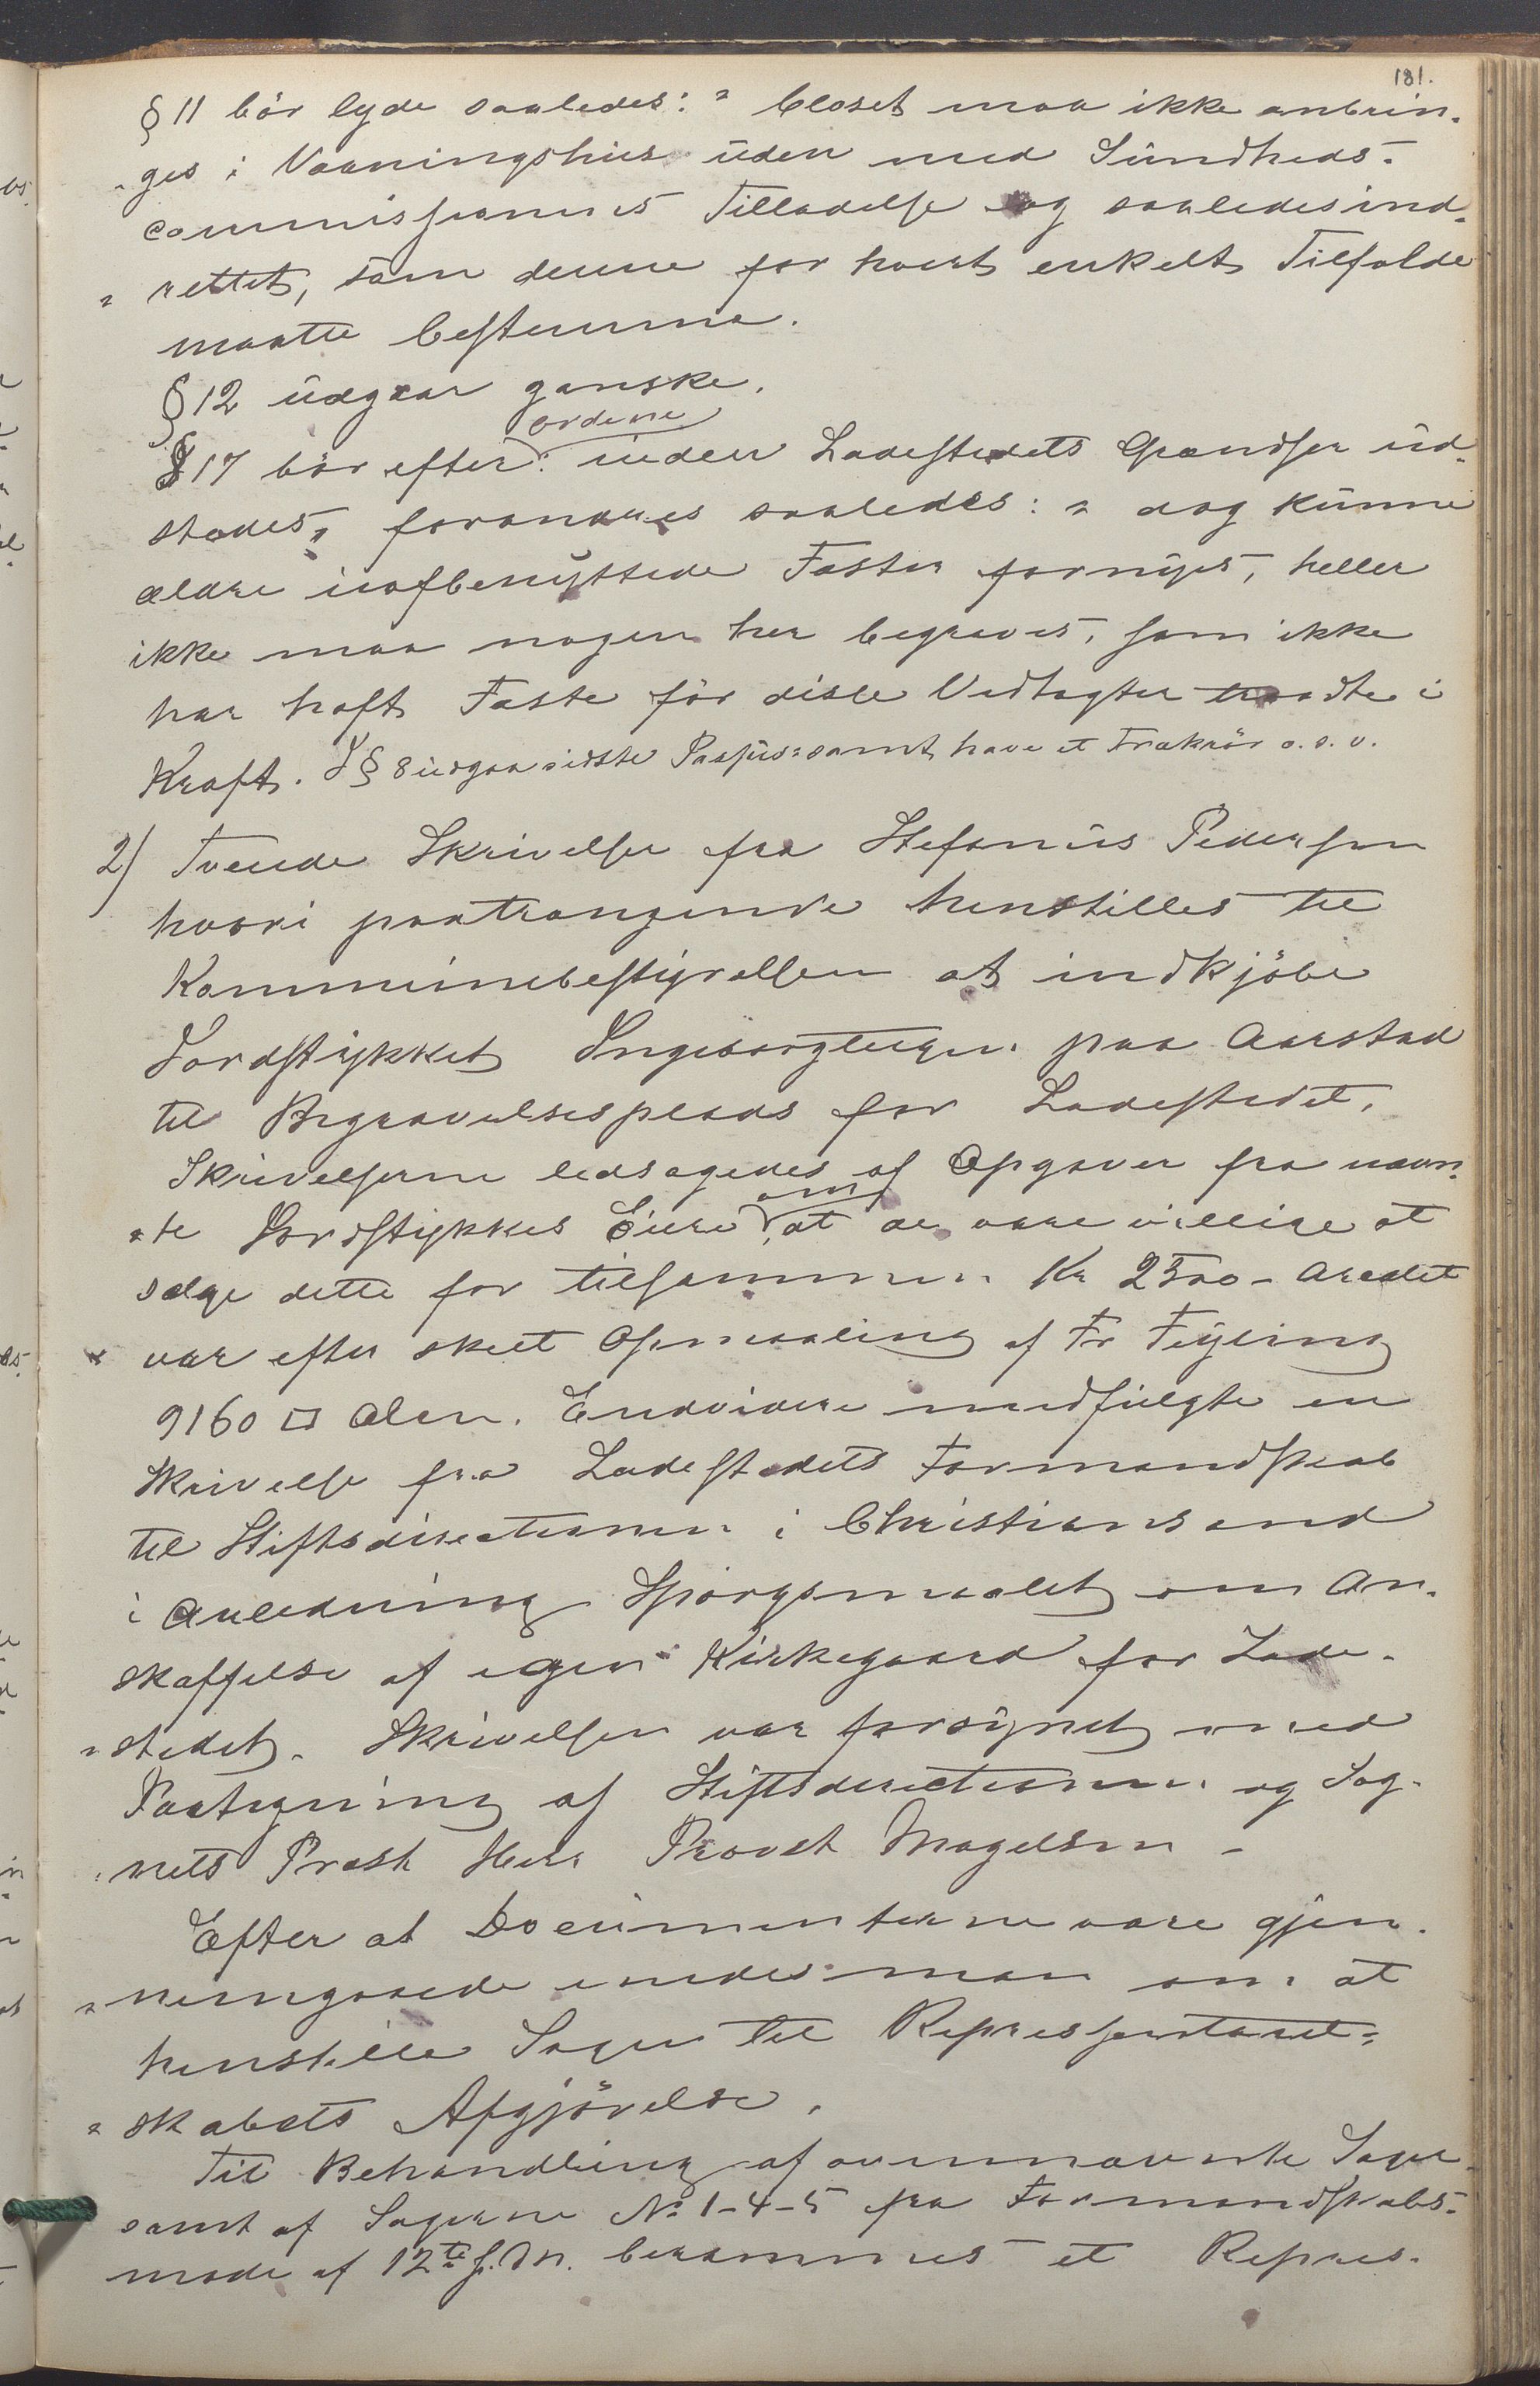 181.
§ 11 bör lyde saaledes: " Closet maa ikke anbrin-
"ges i Vaaningshus uden med Sundheds-
commissionens Tilladelse og saaledes ind-
" rettet, som denne for hvert enkelt Tilfælde
maatte bestemme.
§ 12 udgaar ganske.
ordene
§ 17 bör efter: inden Ladestedets Grændser ud-
stædes, forandres saaledes: " dog kunne
ældre uafbenyttede Fæster fornyes, heller
ikke maa nogen her begraves, som ikke
har havt Fæste för disse Vedtægter traadte i
Kraft. I § 8 udgaar sidste Passus: samt have et Trækrör o. s. v.
2) Tvende Skrivelser fra Stefanus Pedersen
hvori paatrængende henstilles til
Kommunebestyrelsen at indkjöbe
Jordstykket Ingeborgteigen paa Aarstad
til Begravelsesplads for Ladestedet.
Skrivelserne ledsagedes af Opgaver fra nævn-
om
"te Jordstykkes Eiere, at de vare villige at
sælge dette for tilsammen Kr 2500 - Arealet
var efter skeet Opmaaling af Fr Feyling
9160 □ Alen. Endvidere medfulgte en
Skrivelse fra Ladestedets Formandskab
til Stiftsdirectionen i Christiansand
i Anledning Spörgsmaalet om An-
skaffelse af egen Kirkegaard for Lade-
"stedet. Skrivelsen var forsynet med
Paategning af Stiftsdirectionen og Sog-
"nets Præst Herr Provst Magelsen -
Efter at Documenterne vare gjen-
"nemgaaede enedes man om at
henstille Sagen til Repræsentant-
"skabets Afgjörelse.
Til Behandling af ovennævnte Sager
samt af Sagerne No 1-4-5 fra Formandskabs-
mode af 12te f. Mn. berammes et Repræs-